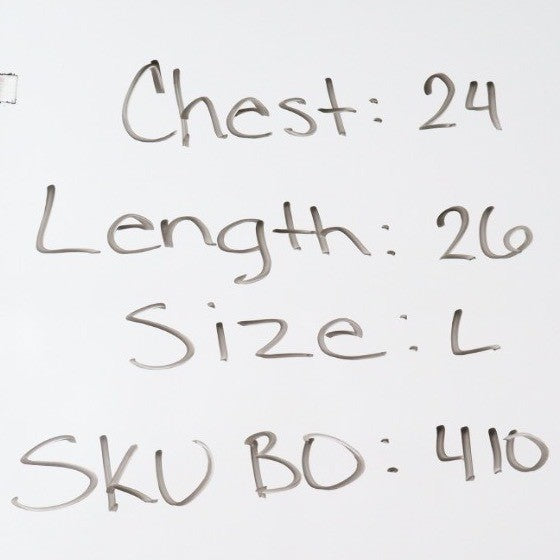 Chest: 24
Length: 26
Size: L
SKU BO: 410